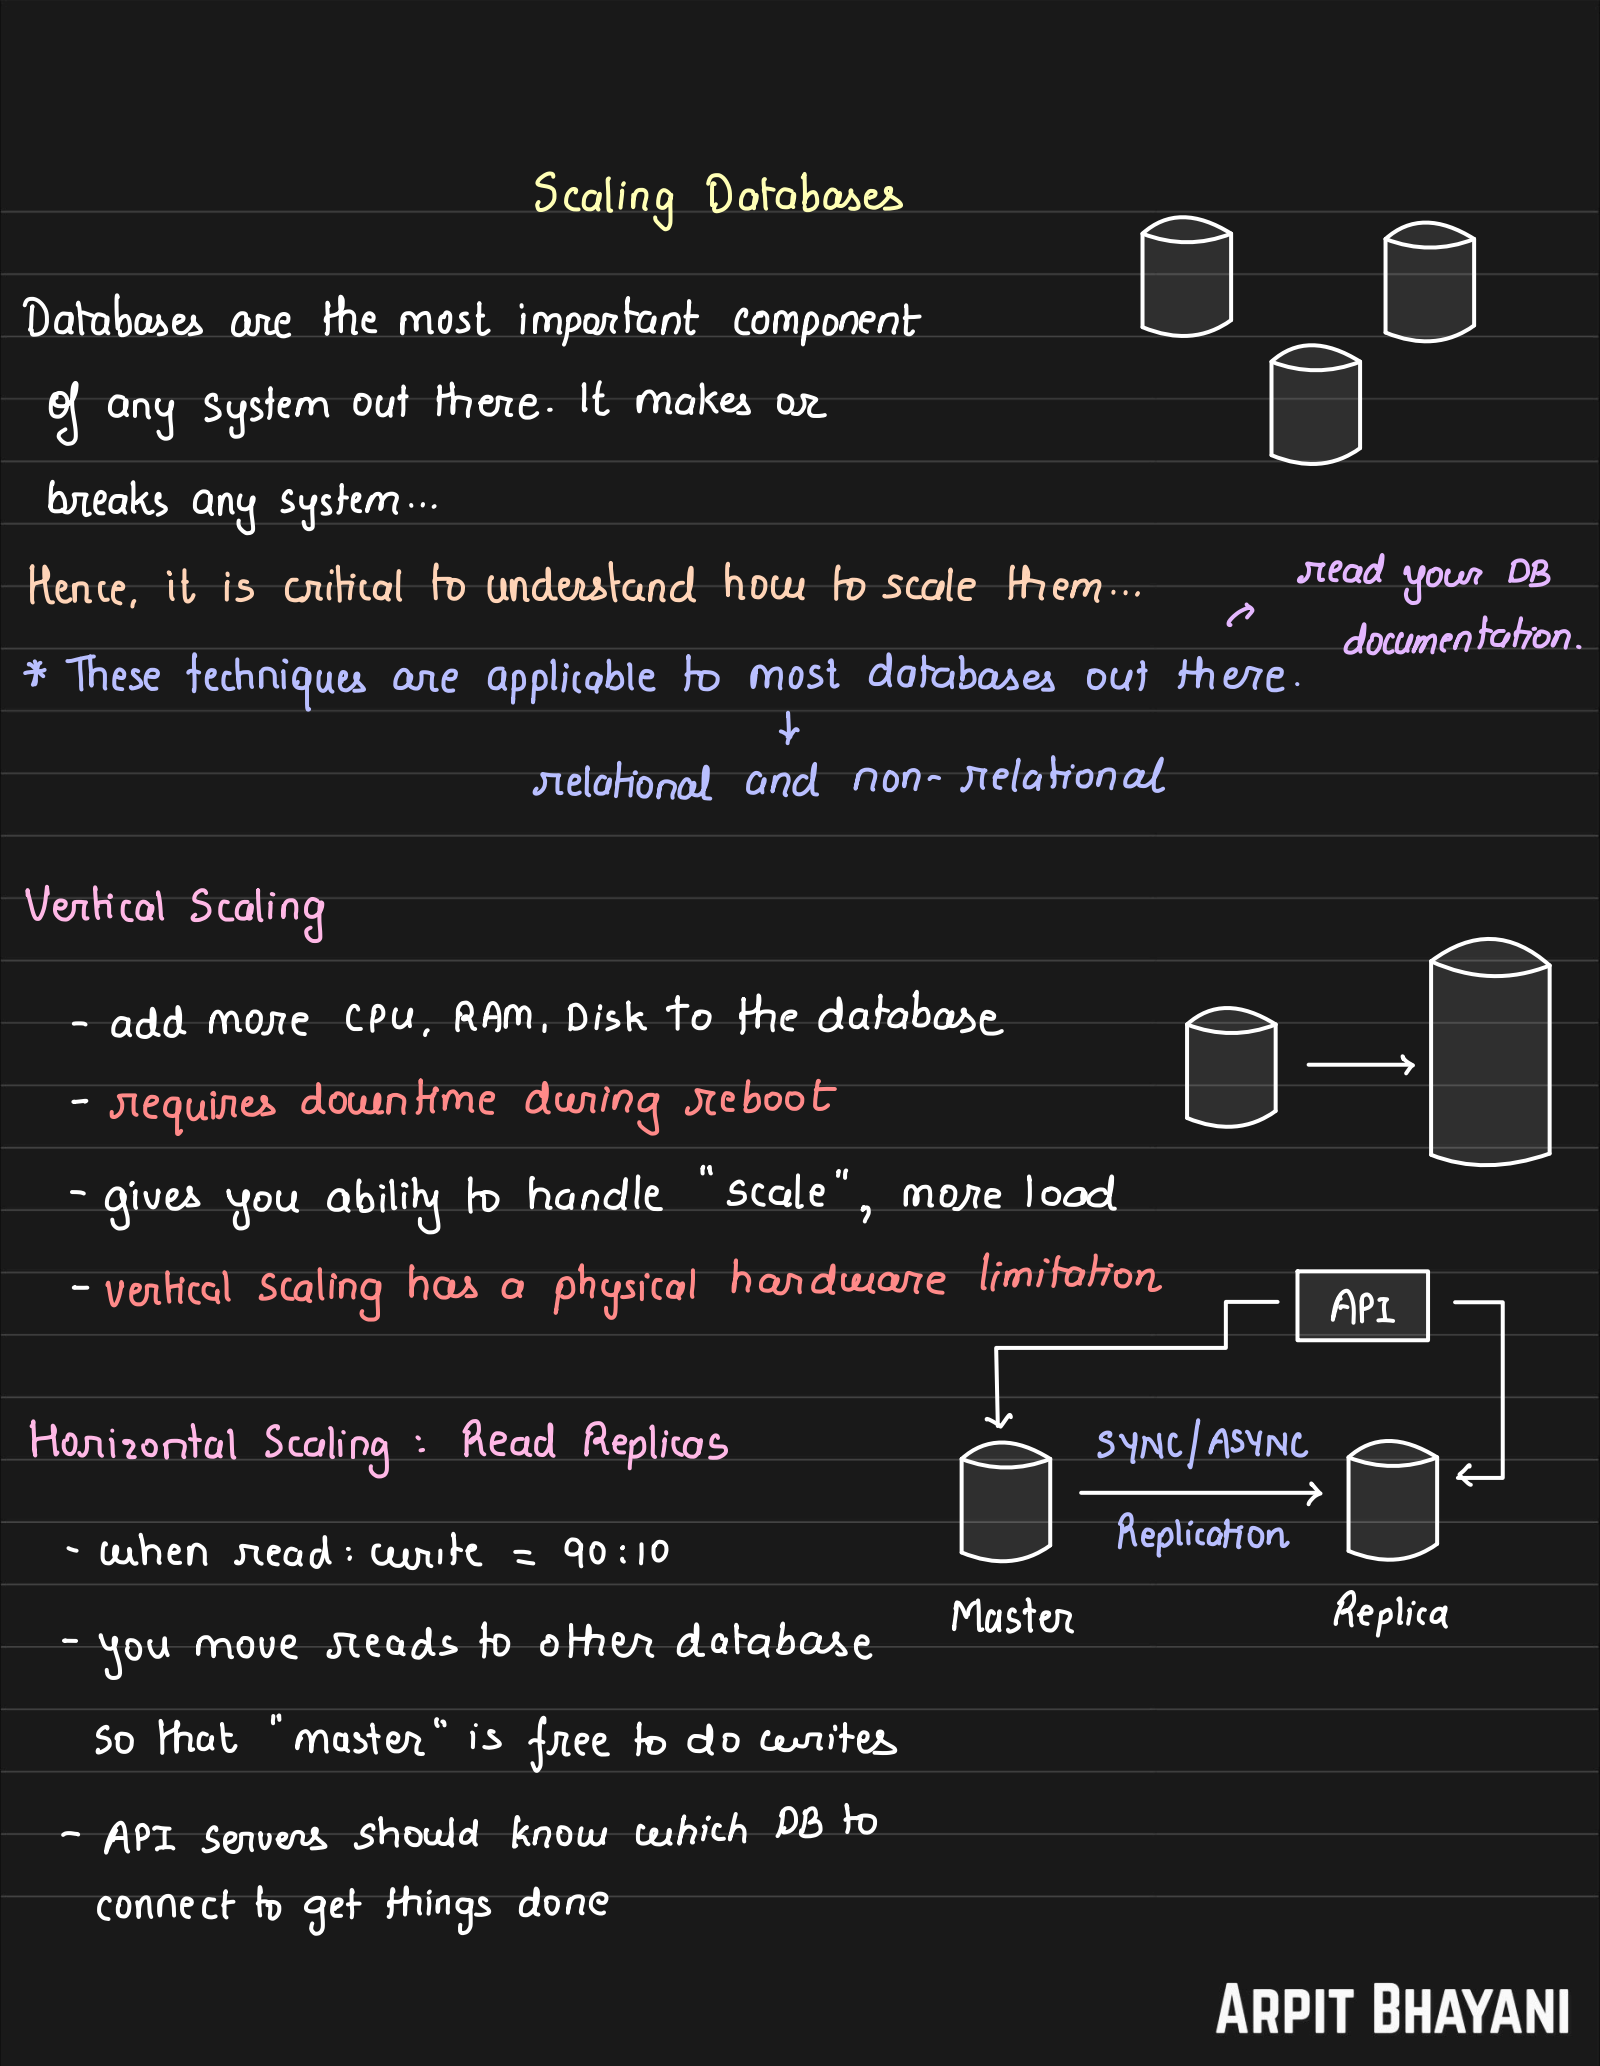 Scaling Databases
Databases are the most important component
of any system out there. It makes or
breaks any system...
Hence, it is critical to understand how to scale them...
read your DB
documentation.
* These techniques are applicable to most databases out there.
relational and non-relational
Vertical Scaling
- add more CPU, RAM, Disk to the database
- requires downtime during reboot
- gives you ability to handle "scale", more load
- vertical scaling has a physical hardware limitation
API
Horizontal Scaling : Read Replicas
SYNC/ASYNC
Replication
- when read : write = 90:10
Master
Replica
- you move reads to other database
so that "master" is free to do writes
- API servers should know which DB to
connect to get things done
ARPIT BHAYANI